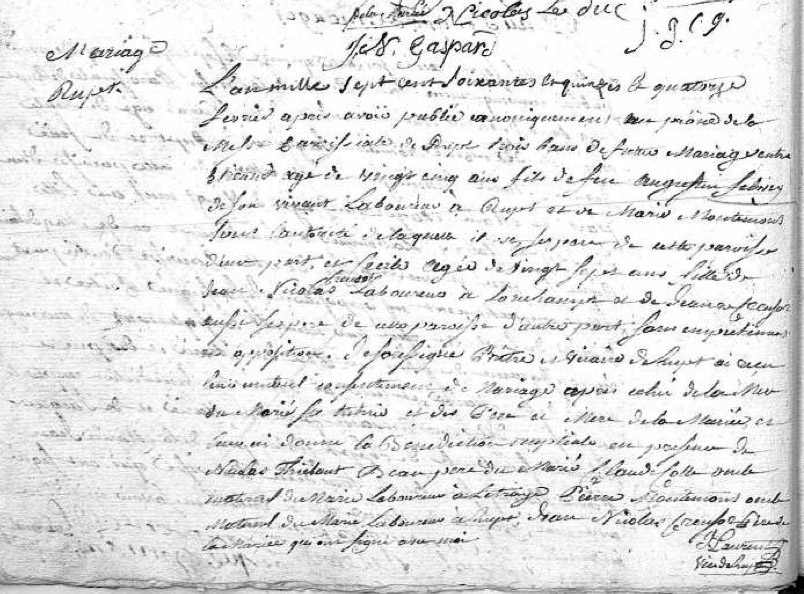 de la Mariée Nicolas Le duc
J. N. Gaspard
Mariage
Rupt.
L'an mille sept cent soixantes et quinzes le quatorze
fevrier après avoir publié canoniquement au prône de la
Messe Paroissiale de Rupt trois bans de futur Mariage entre
agé de vingt cinq ans fils de feu Augustin
de son vivant Laboureur à Rupt et de Marie Montemont
sous l'autorité de laquelle il de cette paroisse
d'une part, et Cecile agée de vingt sept ans fille de
Jean Nicolas Laboureur à Lonchampt et de Jeanne
aussi de cette paroisse d'autre part, sans empechement
ni opposition. Je soussigné Prêtre et Vicaire de Rupt ai reçu
leur mutuel consentement de Mariage après celui de la Mere
du Marié sus et des Pere et Mere de la Mariée, et
leur ai donné la Benediction nuptiale en presence de
Nicolas Thiebaut Beau pere du Marié, Claude Colle oncle
maternel du Marié Laboureur à Létraye, Pierre Montemont oncle
Maternel du Marié Laboureur à Rupt, Jean Nicolas Pere de
la Mariée qui ont signé avec moi
J Laurent
Vic. de Rupt.